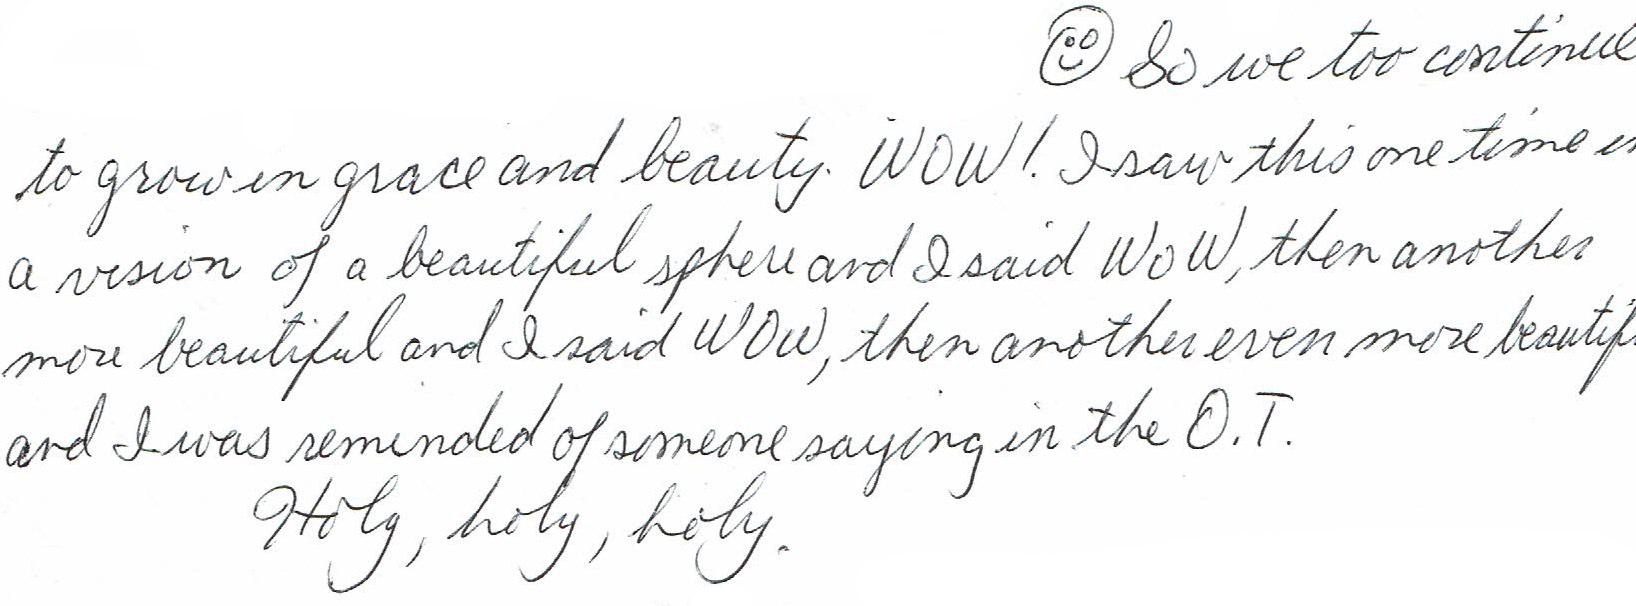 ☺ So we too continue
to grow in grace and beauty. WOW! I saw this one time in
a vision of a beautiful sphere and I said WOW, then another
more beautiful and I said WOW, then another even more beautif
and I was reminded of someone saying in the O.T.
Holy, holy, holy.